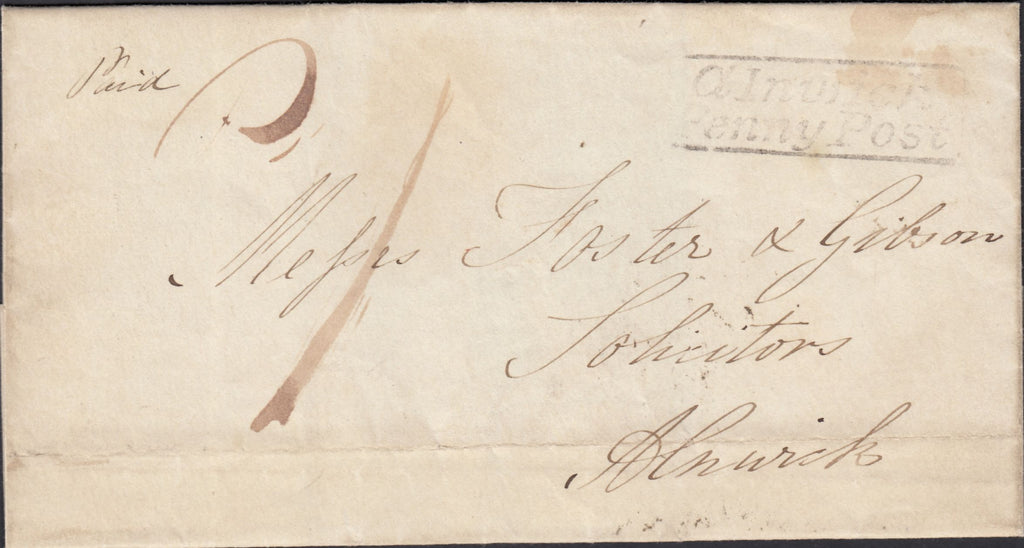 Paid
P 1
Alnwick
Penny Post
Messrs Foster & Gibson
Solicitors
Alnwick